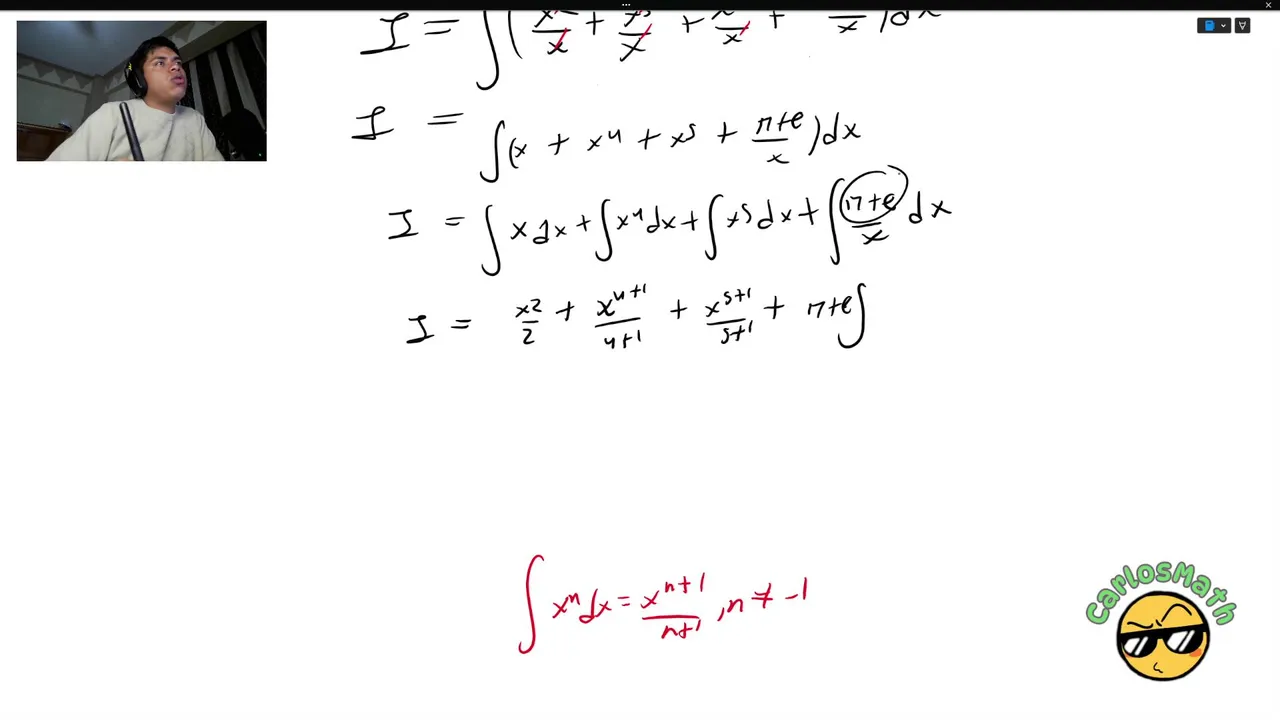 I = ∫(x²/x + x⁵/x + x/x + /x)dx
I = ∫(x + x⁴ + x⁵ + π+e/x)dx
I = ∫x dx + ∫x⁴dx + ∫x⁵dx + ∫π+e/x dx
I = x²/2 + x⁴⁺¹/4+1 + x⁵⁺¹/5+1 + π+e∫
∫xⁿdx = xⁿ⁺¹/n+1 , n ≠ -1
CarlosMath